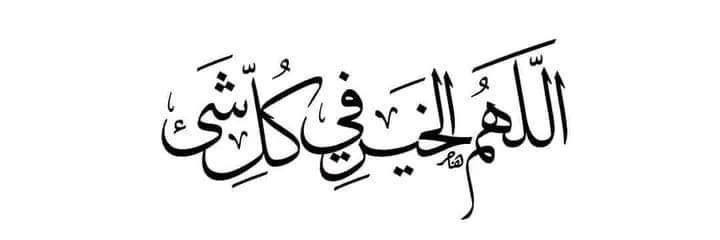 اللَّهُمَ الخَيرَ فِي كُلِّ شَئ